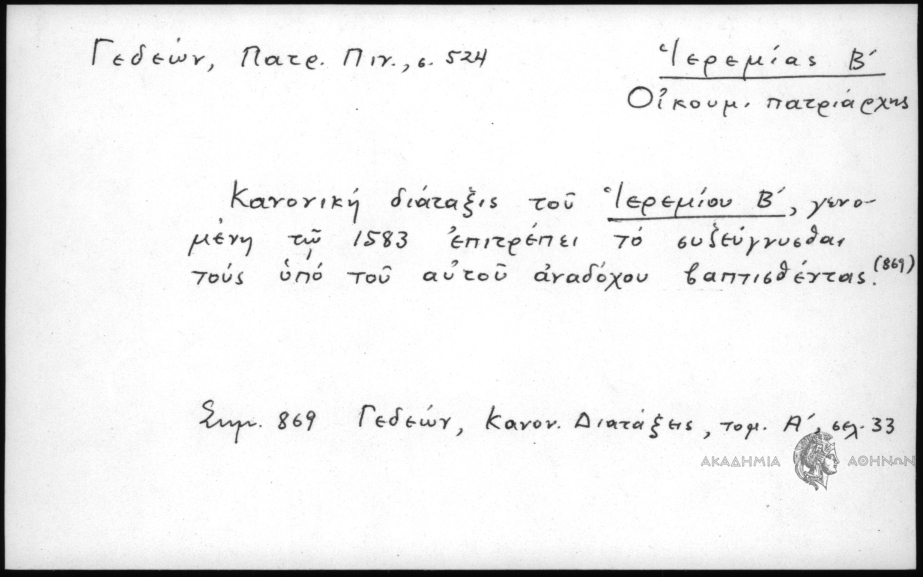 Γεδεών, Πατρ. Πιν., σ. 524
Ἱερεμίας Β΄
Οἰκουμ. πατριάρχης
Κανονική διάταξις τοῦ Ἱερεμίου Β΄, γενο-
μένη τῷ 1583 ἐπιτρέπει τό συζεύγνυσθαι
τούς ὑπό τοῦ αὐτοῦ ἀναδόχου βαπτισθέντας.(869)
Σημ. 869 Γεδεών, Κανον. Διατάξεις, τομ. Α΄, σελ. 33
ΑΚΑΔΗΜΙΑ ΑΘΗΝΩΝ